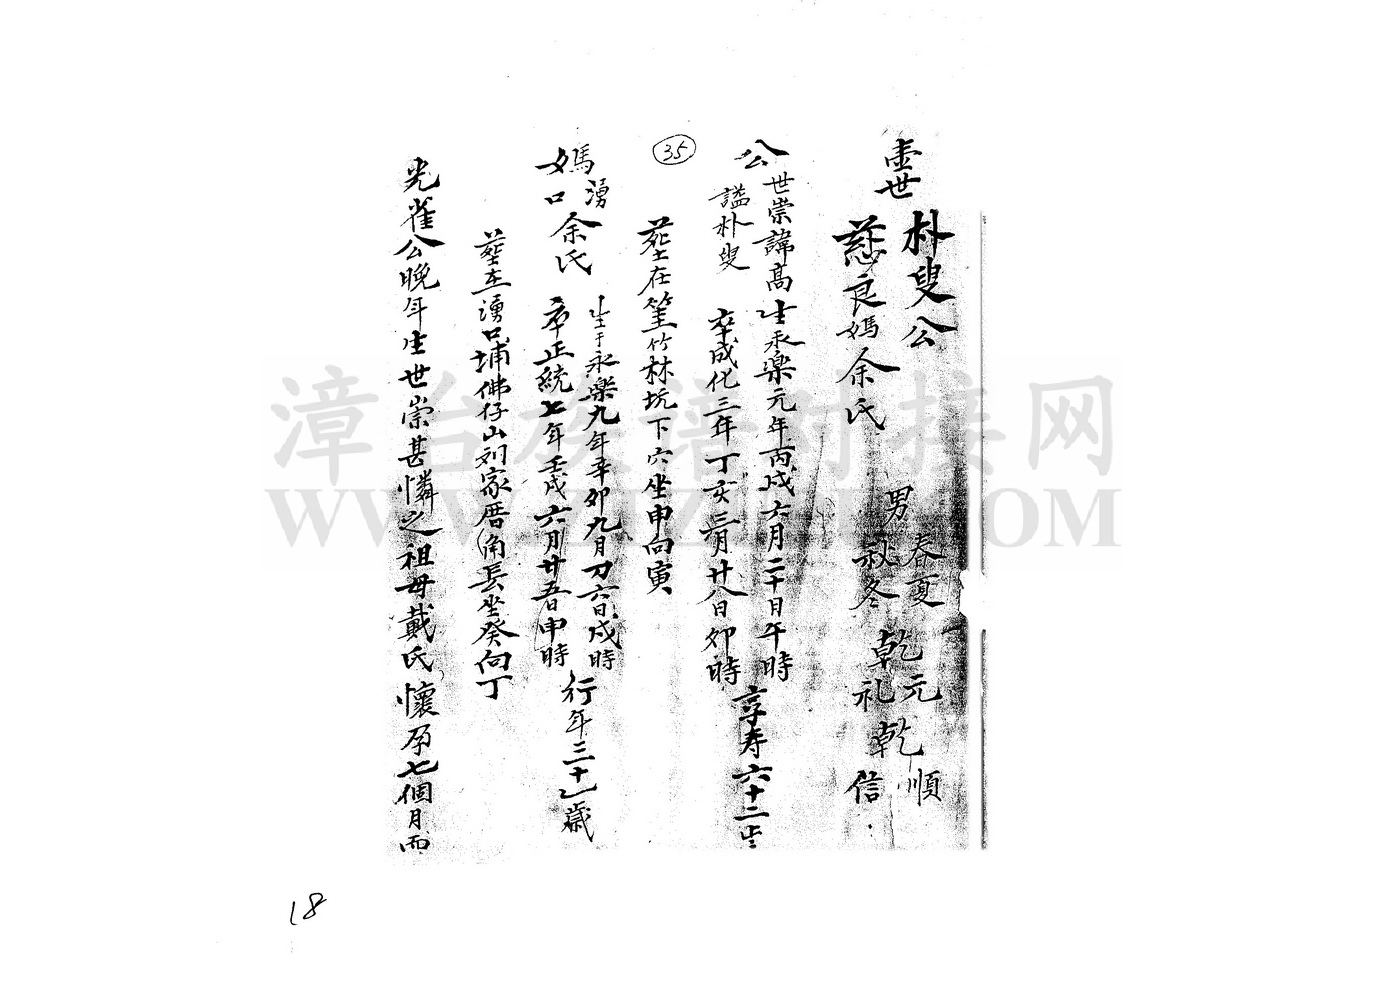 壹世
朴叟公
慈良媽余氏
男 春夏 乾元 乾順
秋冬 乾礼 乾信
公 世崇諱高 生永樂元年丙戌六月二十日午時
謚朴叟 卒成化三年丁亥三月廿八日卯時
享寿六十二歲
㉟
塟在筀竹林坑下穴坐申向寅
媽湧口余氏 生于永樂九年辛卯九月初六日戌時
卒正統七年壬戌六月廿五日申時
行年三十乙歲
塟在湧口埔佛仔山刘家厝角長坐癸向丁
光雀公晚年生世崇甚憐之祖母戴氏懷孕七個月而
18
漳台族谱对接网